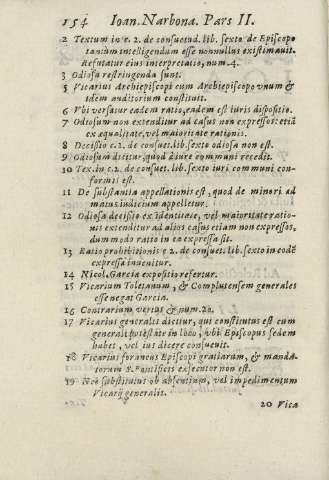 154 Ioan. Narbona. Pars II.
2 Textum in c. 2. de consuetud. lib. sexto de Episcopo
tantùm intelligendum esse nonnullus existimavit.
Refutatur eius interpretatio, num. 4.
3 Odiosa restringenda sunt.
5 Vicarius Archiepiscopi cum Archiepiscopo vnum &
idem auditorium constituit.
6 Vbi versatur eadem ratio, eadem est iuris dispositio.
7 Odiosum non extenditur ad casus non expressos: etiã
ex æqualitate, vel maioritate rationis.
8 Decisio c. 2. de consuet. lib. sexto odiosa non est.
9 Odiosum dicitur, quod à iure communi recedit.
10 Tex. in c. 2. de consuet. lib. sexto iuri communi con-
formis est.
11 De substantia appellationis est, quod de minori ad
maius iudicium appelletur.
12 Odiosa decisio ex identitate, vel maioritate ratio-
nis extenditur ad alios casus etiam non expressos,
dummodo ratio in ea expressa sit.
13 Ratio prohibitionis c. 2. de consuet. lib. sexto in eodẽ
expressa invenitur.
14 Nicol. Garcia expositio refertur.
15 Vicarium Toletanum, & Complutensem generales
esse negat Garcia.
16 Contrarium verius & num. 20.
17 Vicarius generalis dicitur, qui constitutus est cum
generali potestate in loco, vbi Episcopus sedem
habet, vel ius dicere consuevit.
18 Vicarius foraneus Episcopi gratiarum, & manda-
torum S. Pontificis executor non est.
19 Nec substitutus ob absentiam, vel impedimentum
Vicarij generalis.
20 Vica